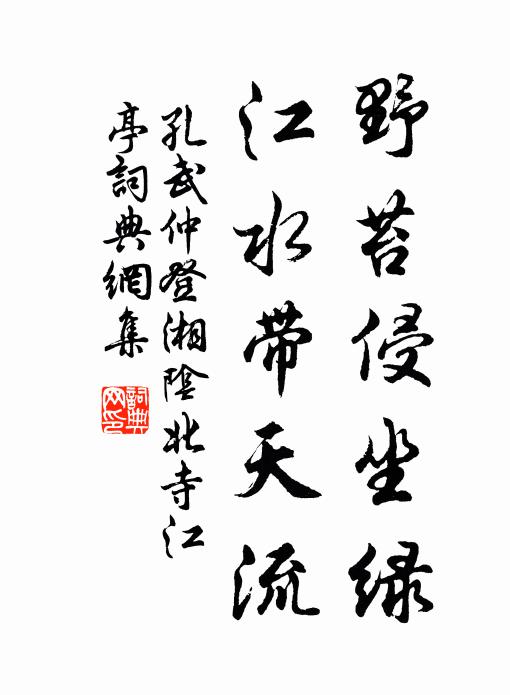 野苔侵坐綠
江水帶天流
孔武仲登湘陰北寺江
亭詞典網集
詞典网印